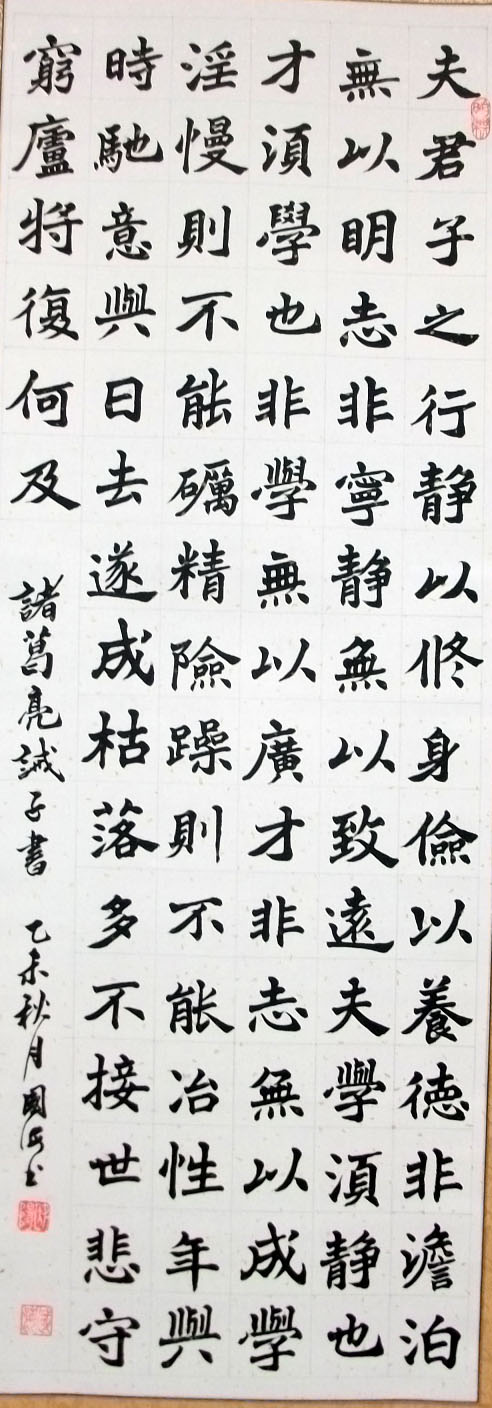 夫君子之行静以修身儉以養德非澹泊
無以明志非寧静無以致遠夫學須静也
才須學也非學無以廣才非志無以成學
淫慢則不能礪精險躁則不能冶性年與
時馳意與日去遂成枯落多不接世悲守
窮廬將復何及
諸葛亮誡子書
乙未秋月國